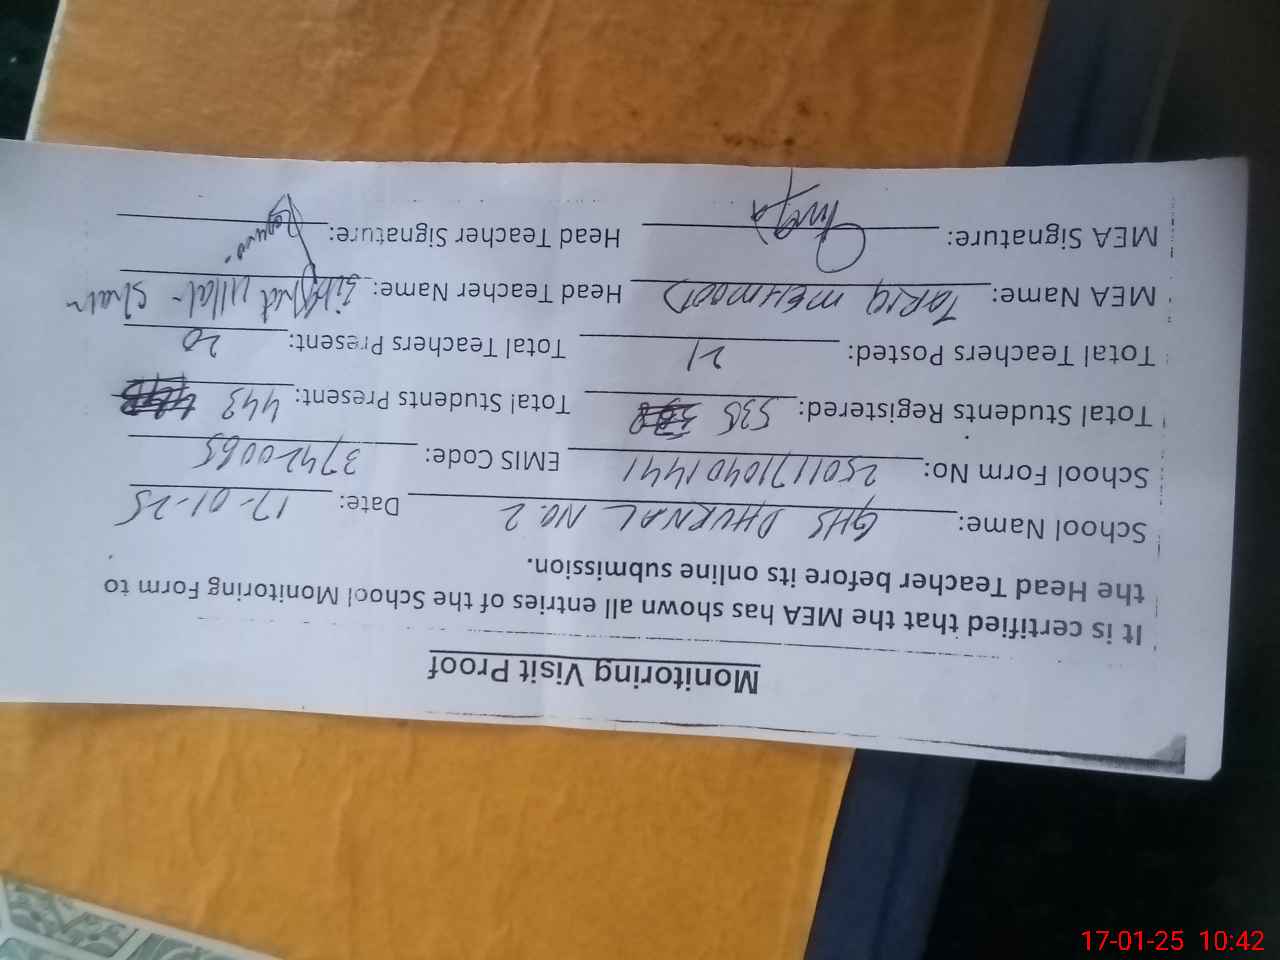 Monitoring Visit Proof
It is certified that the MEA has shown all entries of the School Monitoring Form to
the Head Teacher before its online submission.
School Name: GHS DHURNAL NO.2 Date: 17-01-25
School Form No: 25011710401441 EMIS Code: 37420065
Total Students Registered: 535 Total Students Present: 443
Total Teachers Posted: 21 Total Teachers Present: 20
MEA Name: TARIQ MEHMOOD Head Teacher Name: ullah Shah
MEA Signature: Head Teacher Signature:
17-01-25 10:42